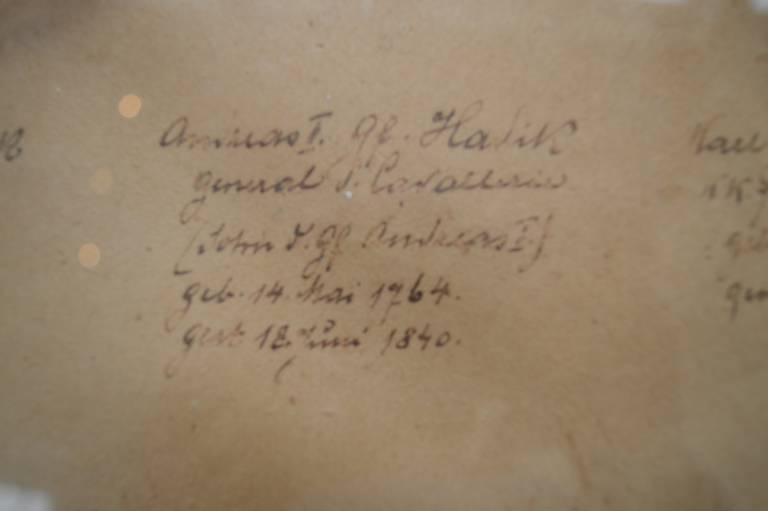 Andreas II. Gf. Hadik
general d. Cavallerie
(Sohn d. Gf. Andreas I.)
geb. 14. Mai 1764.
gest 12. Juni 1840.
Karl